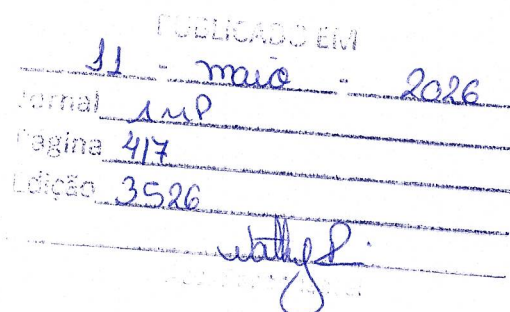 PUBLICADO EM
11 - maio - 2026
Jornal AMP
Pagina 417
Edição 3526